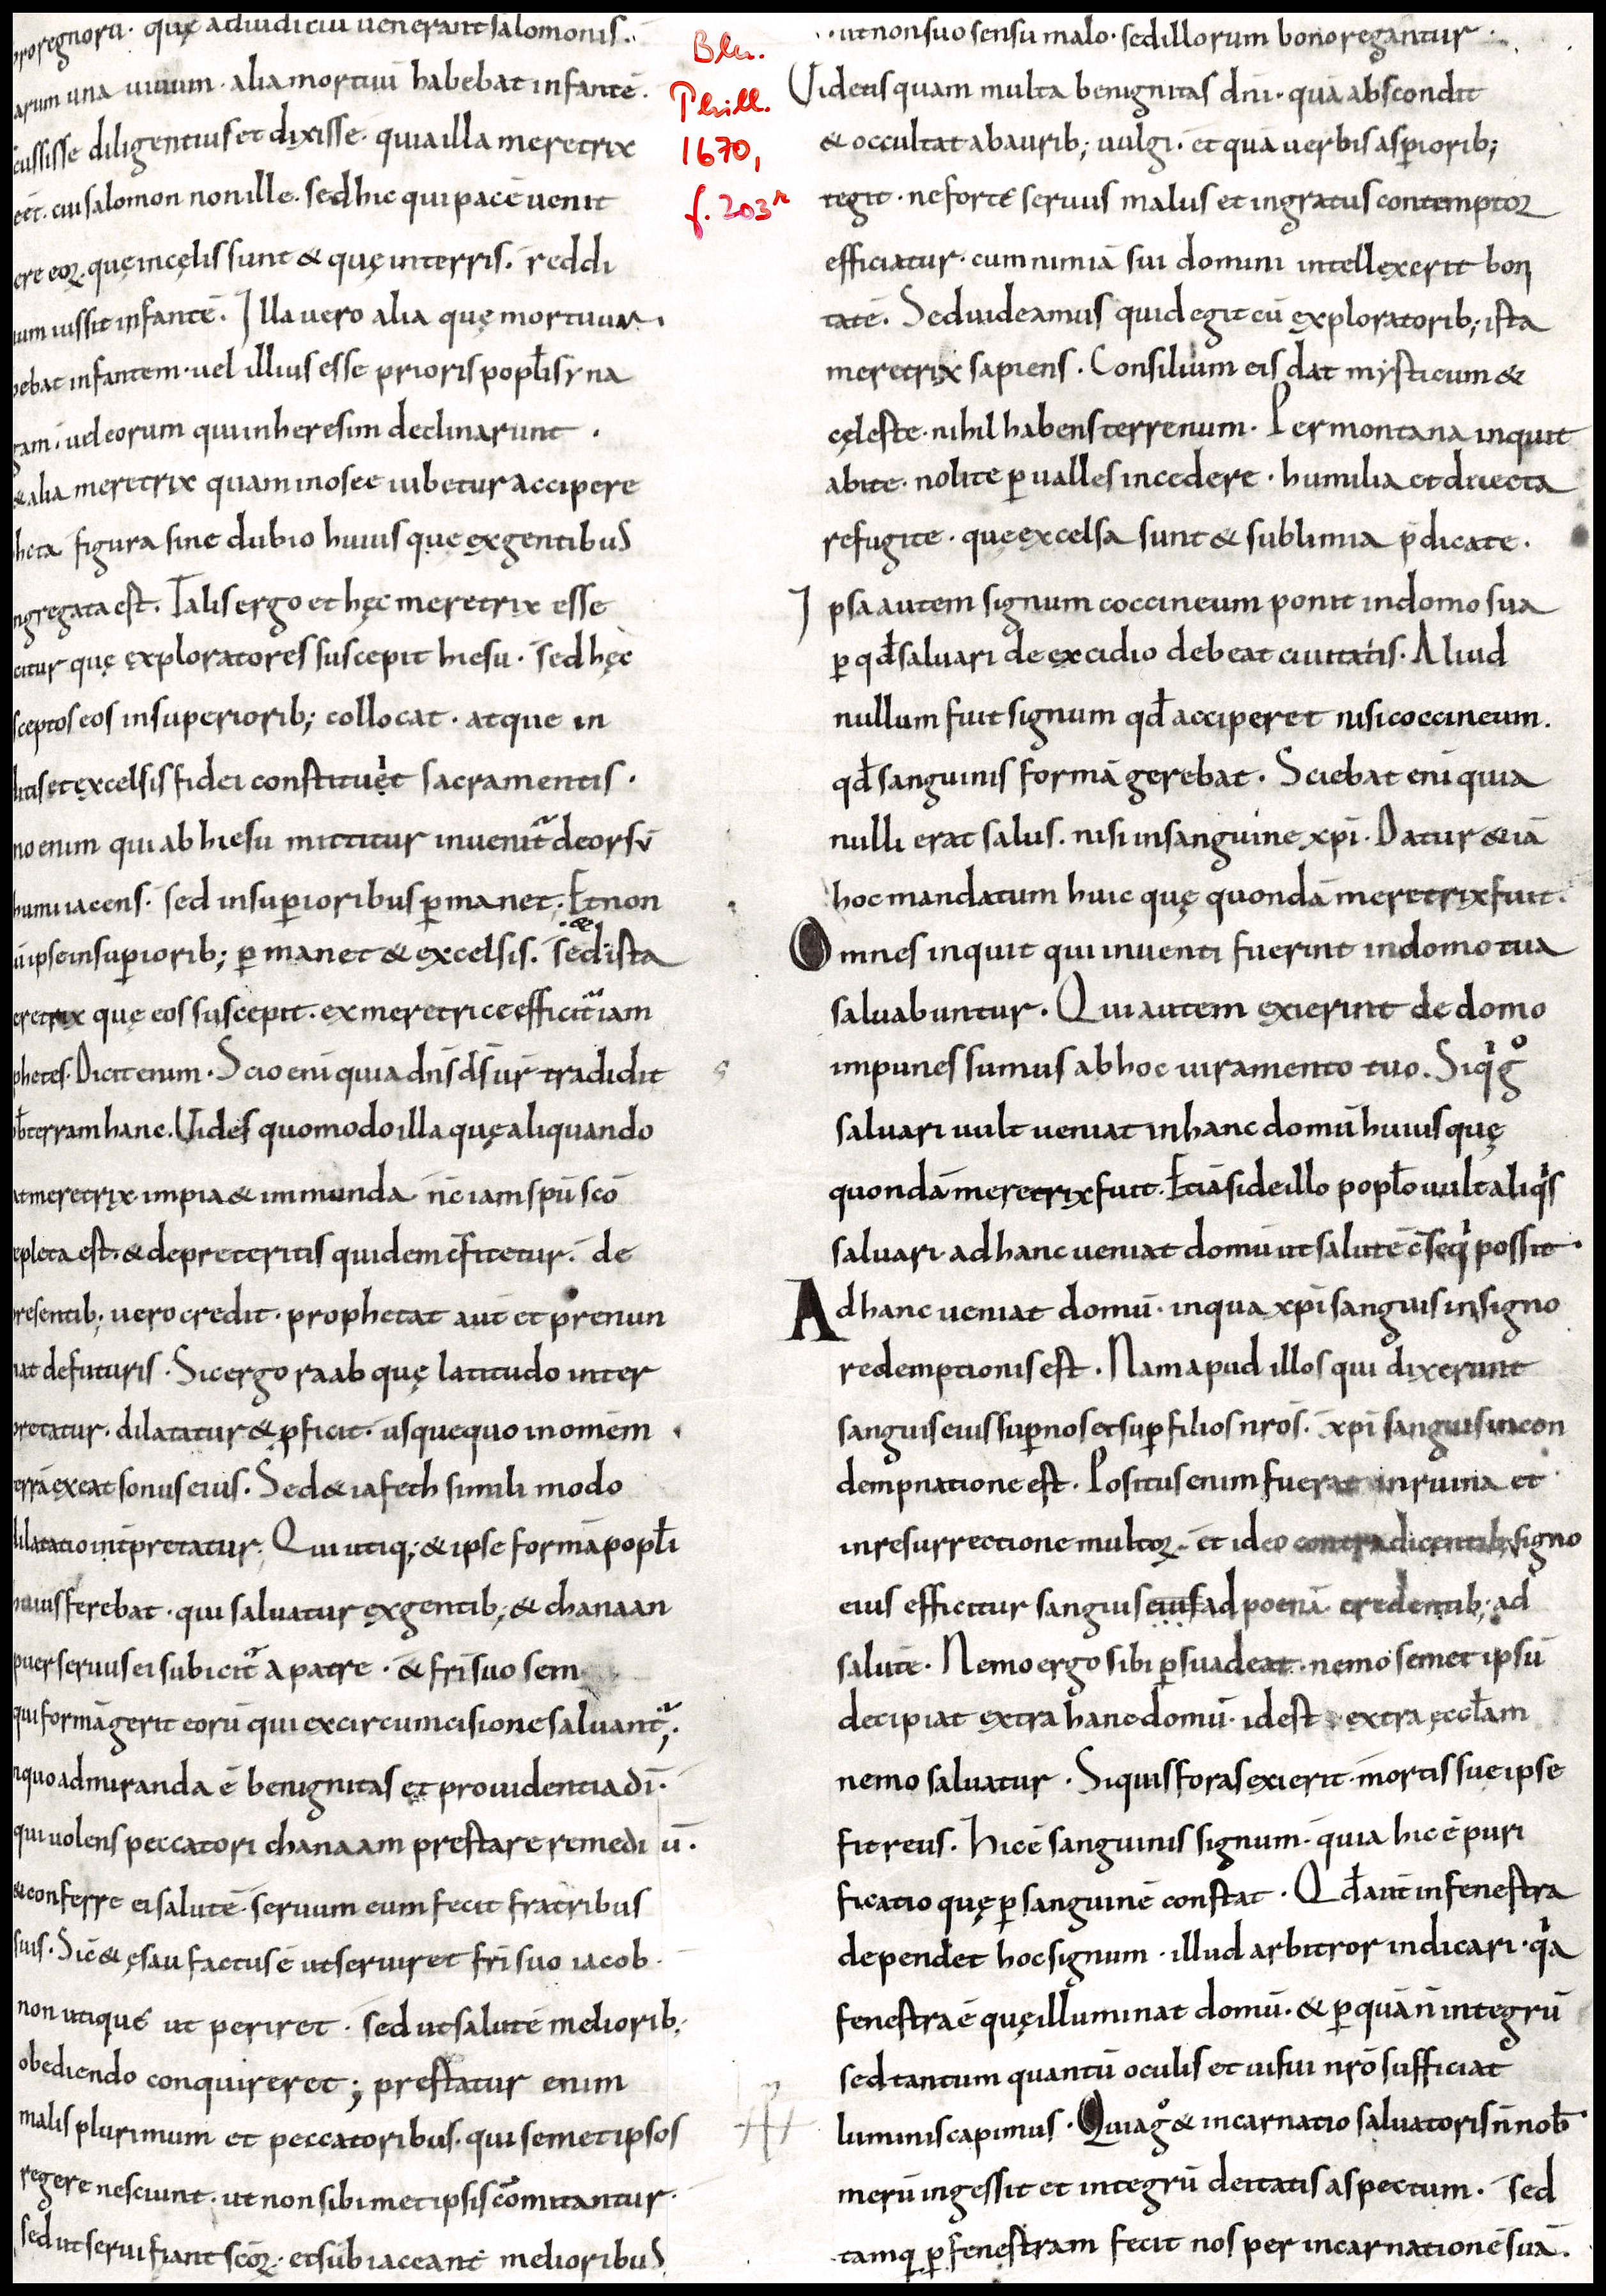 proregnorū · quę adiudiciū uenerant salomonis.
arum una uiuum · alia mortuū habebat infantē.
cussisse diligentius et dixisse · quia illa meretrix
eēt. cui salomon non ille. sed hic qui pacē uenit
ere eoꝝ. quę in cęlis sunt & quę in terris. reddi
um iussit infantē. Illa uero alia quę mortuum
bebat infantem · uel illius esse prioris popłi syna
gam · uel eorum qui in heresim declinarunt ·
& alia meretrix quam in osee iubetur accipere
heta figura sine dubio huius que ex gentibus
ngregata est. Talis ergo et hęc meretrix esse
citur quę exploratores suscepit hiesu · Sed hęc
sceptos eos in superiorib; collocat · atque in
litis et excelsis fidei constituit sacramentis ·
no enim qui ab hiesu mittitur inuenit̄ deorsū
humi iacens · sed in suꝑioribus ꝑmanet · Et non
ū ipse in suꝑiorib; ꝑmanet & excelsis. Sed & ista
eretrix quę eos suscepit · ex meretrice efficit̄ iam
phetes. Dicit enim · Scio enī quia dn̄s d̄s ur̄ tradidit
ob̄ terram hanc. Uides quomodo illa quę aliquando
at meretrix impia & immunda nc̄ iam spū scō
epleta est. & de preteritis quidem c̄fitetur. de
presentib; uero credit · prophetat aut̄ et prenun
iat de futuris · Sic ergo raab quę latitudo inter
pretatur · dilatatur & ꝓficit · usquequo in omēm
terrā exeat sonus eius. Sed & iafeth simili modo
dilatatio int̄pretatur. Qui utiq; & ipse formā popłi
huius ferebat · qui saluatur ex gentib; & chanaan
puer seruus ei subicit̄ a patre · & fr̄i suo sem
qui formā gerit eorū qui ex circumcisione saluant̄;
inquo admiranda ē benignitas et prouidentia dī ·
qui uolens peccatori chanaam prestare remediū.
& conferre ei salutē seruum eum fecit fratribus
suis. Sic & ęsau factus ē ut seruiret fr̄i suo iacob ·
non utique ut periret · sed ut salutē meliorib;
obediendo conquireret; prestatur enim
malis plurimum et peccatoribus. qui semetipsos
regere nesciunt · ut non sibimetipsis com̄itantur ·
sed ut serui fiant scōꝝ · et subiaceant melioribus
Bln.
Phill.
1670,
f. 203r
ut non suo sensu malo · sed illorum bono regantur
Uidetis quam multa benignitas dn̄i · quā abscondit
& occultat ab aurib; uulgi · et quā uerbis asꝑiorib;
tegit · ne forte seruus malus et ingratus contemptoꝝ
efficiatur · cum nimiā sui domini intellexerit boni
tatē. Sed uideamus quid egit cū exploratorib; ista
meretrix sapiens. Consilium eis dat mysticum &
cęleste · nihil habens terrenum · Per montana inquit
abite · nolite ꝑ ualles incedere · humilia et deiecta
refugite · que excelsa sunt & sublimia p̄dicate ·
Ipsa autem signum coccineum ponit in domo sua
ꝑ qd̄ saluari de excidio debeat ciuitatis · Aliud
nullum fuit signum qd̄ acciperet nisi coccineum.
qd̄ sanguinis formā gerebat · Sciebat enī quia
nulli erat salus. nisi in sanguine xp̄i · Datur & iā
hoc mandatum huic quę quondā meretrix fuit.
Omnes inquit qui inuenti fuerint in domo tua
saluabuntur · Qui autem exierint de domo
impunes sumus ab hoc iuramento tuo. Siqi go
saluari uult ueniat in hanc domū huius quę
quondā meretrix fuit · Etiā si de illo popło uult aliqis
saluari ad hanc ueniat domū ut salutē c̄seqi possit ·
Ad hanc ueniat domū · in qua xp̄i sanguis in signo
redemptionis est · Nam apud illos qui dixerunt
sanguis eius suꝑ nos et suꝑ filios nr̄os. Xp̄i sanguis in con
dempnatione est · Positus enim fuerat in ruina et
in resurrectione multoꝝ. et ideo contradicentib; signo
eius efficitur sanguis eius ad poenā credentib; ad
salutē · Nemo ergo sibi ꝑsuadeat · nemo semetipsū
decipiat extra hanc domū · id est extra ęccłam
nemo saluatur · Siquis foras exierit · mortis sue ipse
fit reus. Hic ē sanguinis signum · quia hic ē puri
ficatio quę ꝑ sanguinē constat · Qd̄ aut̄ in fenestra
dependet hoc signum · illud arbitror indicari · qia
fenestra ē quę illuminat domū · & ꝑ quā n̄ integrū
sed tantum quantū oculis et uisui nr̄o sufficiat
luminis capimus · Quia go & incarnatio saluatoris n̄ nob̄
merū ingessit et integrū deitatis aspectum · Sed
tamq ꝑ fenestram fecit nos per incarnationē suā ·